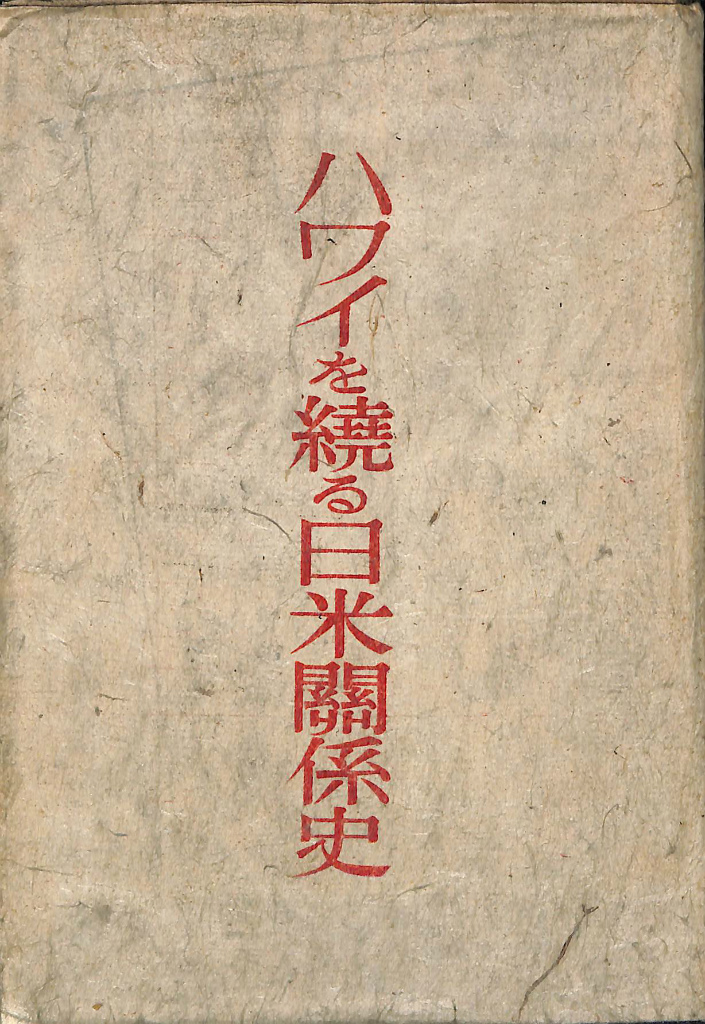 ハワイを繞る日米關係史